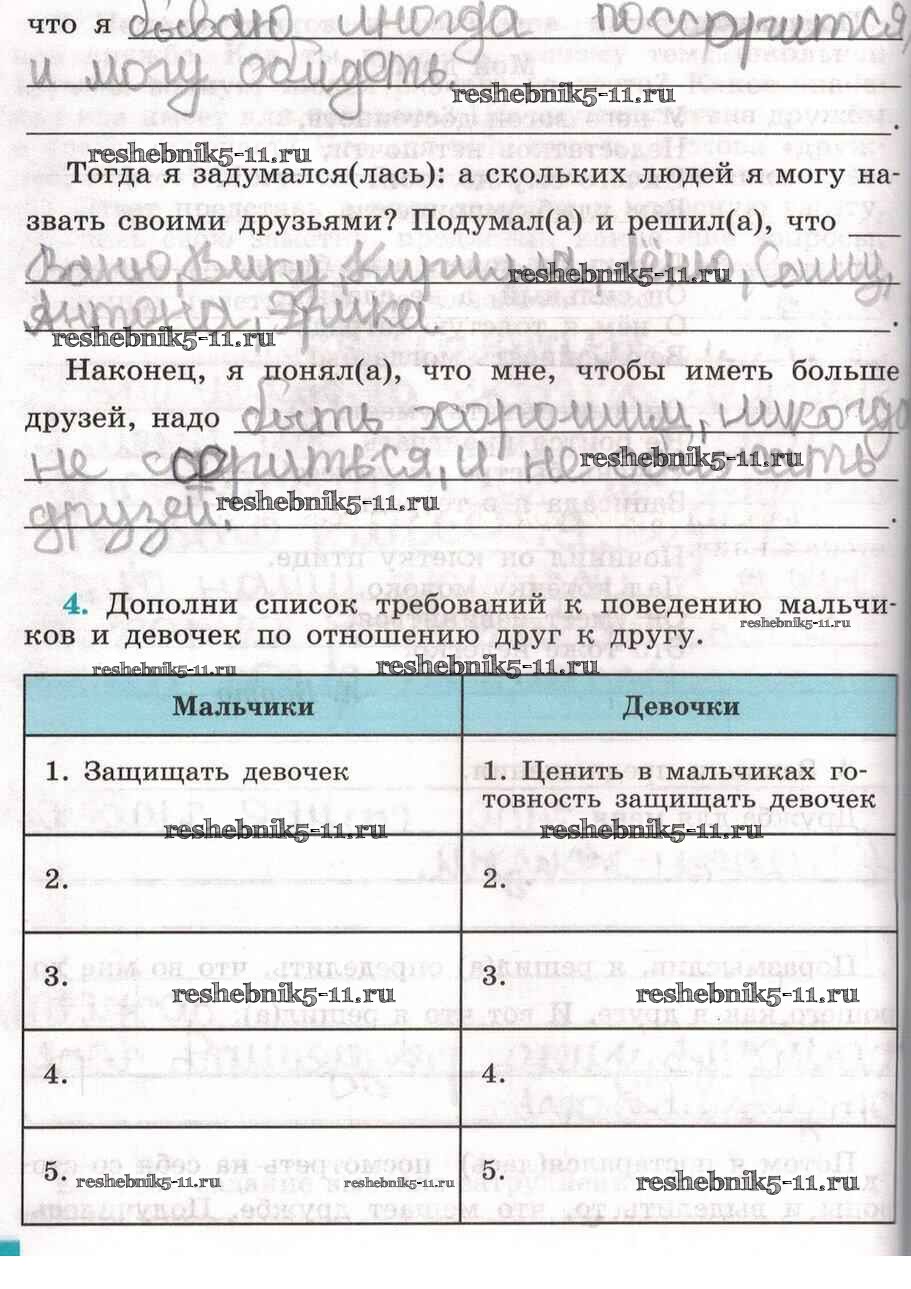 что я бываю иногда поссорится
и могу обидеть.
reshebnik5-11.ru
reshebnik5-11.ru
Тогда я задумался(лась): а скольких людей я могу на-
звать своими друзьями? Подумал(а) и решил(а), что
Ваню, Вику, Кирилла, Сашу,
reshebnik5-11.ru
Антона, Эрика.
reshebnik5-11.ru
Наконец, я понял(а), что мне, чтобы иметь больше
друзей, надо быть хорошим, никогда
не ссориться, и не обижать
reshebnik5-11.ru
друзей.
reshebnik5-11.ru
4. Дополни список требований к поведению мальчи-
ков и девочек по отношению друг к другу.
reshebnik5-11.ru
reshebnik5-11.ru
reshebnik5-11.ru
Мальчики Девочки
1. Защищать девочек
1. Ценить в мальчиках го-
товность защищать девочек
reshebnik5-11.ru reshebnik5-11.ru
2. 2.
3. 3.
reshebnik5-11.ru reshebnik5-11.ru
4. 4.
5. reshebnik5-11.ru reshebnik5-11.ru 5. reshebnik5-11.ru